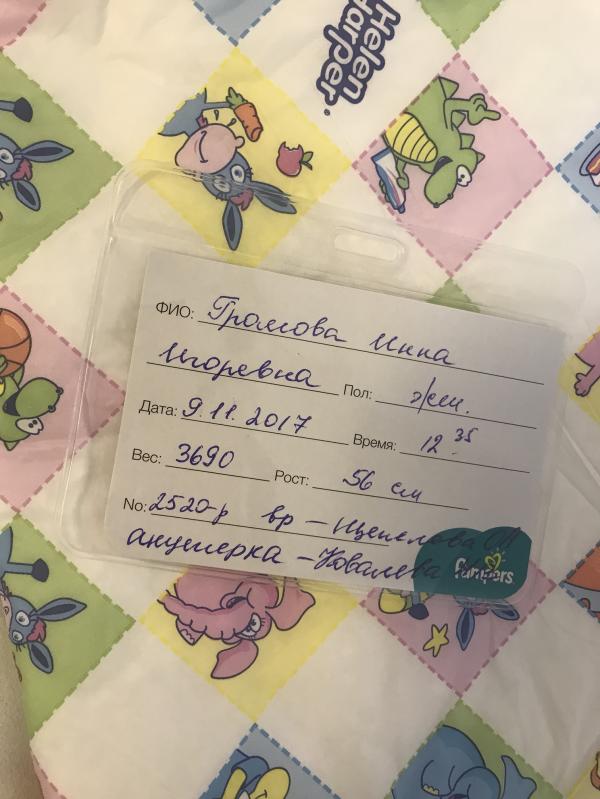 Helen
Harper
ФИО: Громова Инна
Игоревна Пол: жен.
Дата: 9.11.2017 Время: 12 35
Вес: 3690 Рост: 56 см
No: 2520-р вр –
акушерка – Ковалева
Pampers